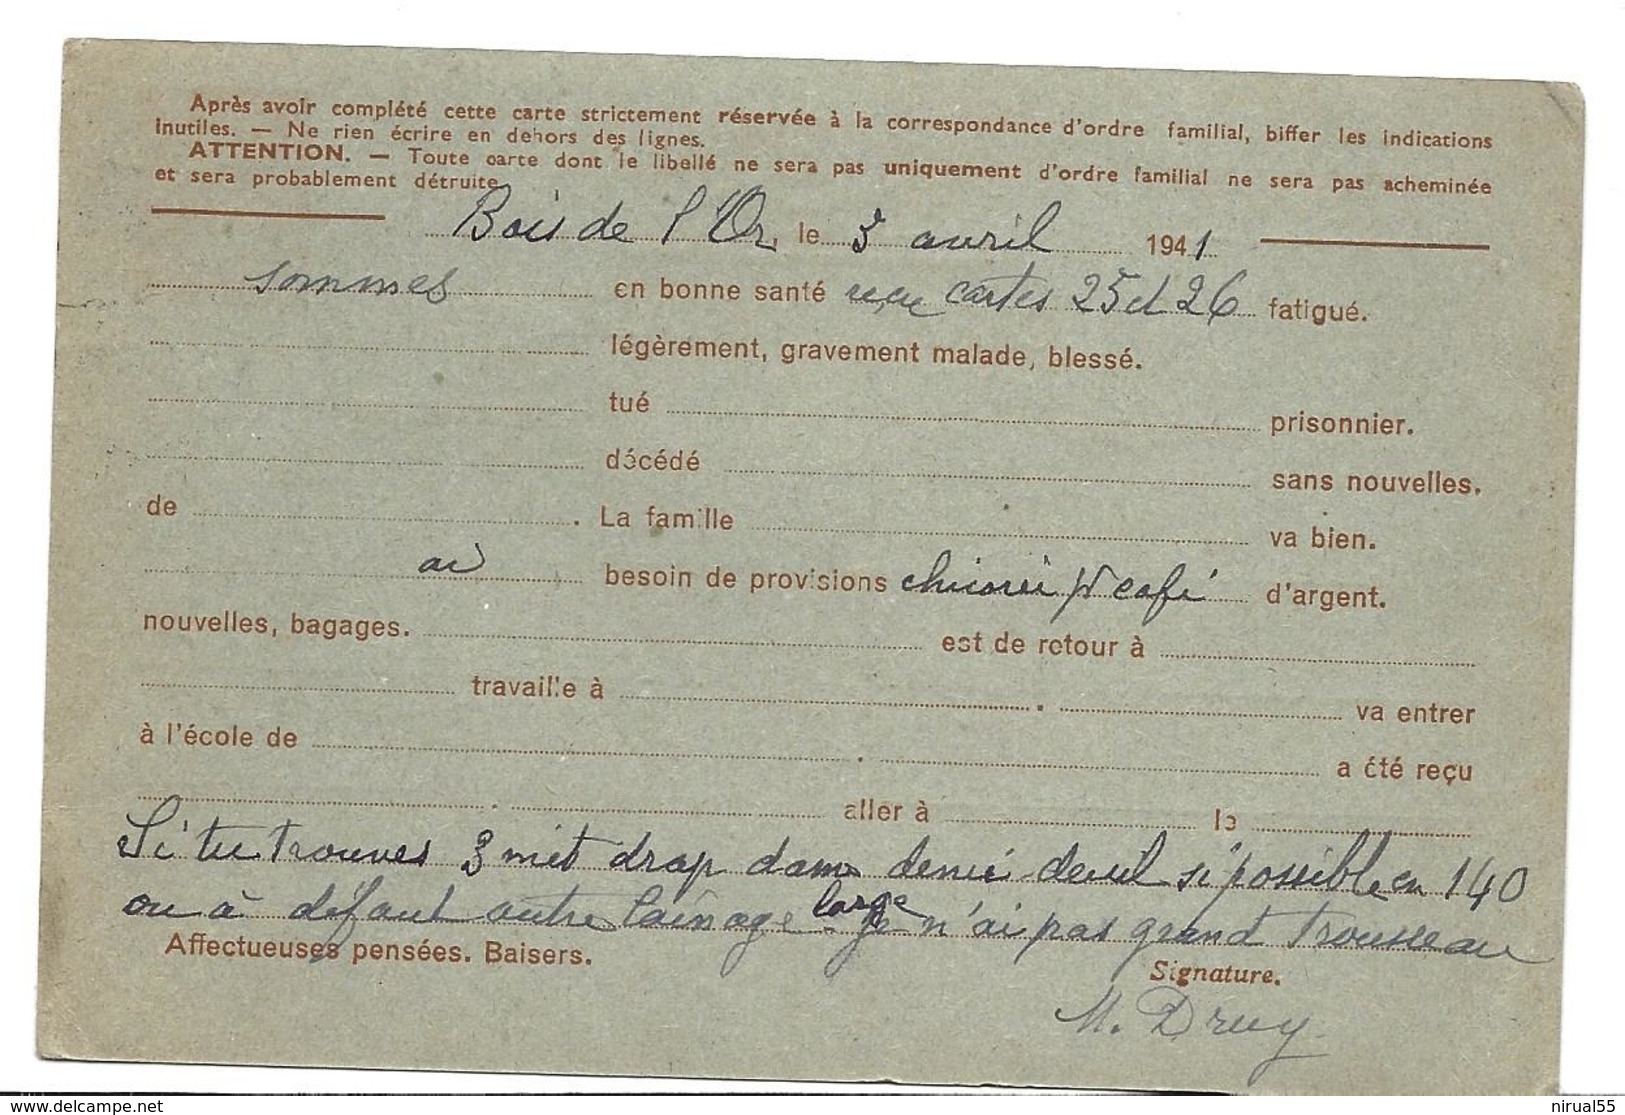 Après avoir complété cette carte strictement réservée à la correspondance d'ordre familial, biffer les indications
inutiles. — Ne rien écrire en dehors des lignes.
ATTENTION. — Toute carte dont le libellé ne sera pas uniquement d'ordre familial ne sera pas acheminée
et sera probablement détruite.
Bois de l'Or, le 3 avril 1941
sommes en bonne santé reçu cartes 25 et 26 fatigué.
légèrement, gravement malade, blessé.
tué prisonnier.
décédé sans nouvelles.
de . La famille va bien.
ai besoin de provisions chicorei pr café d'argent.
nouvelles, bagages. est de retour à
travaille à . va entrer
à l'école de . a été reçu
. aller à le
Si tu trouves 3 mèt drap dame demi deuil si possible en 140
ou à défaut autre lainage large je n'ai pas grand trousseau
Affectueuses pensées. Baisers.
Signature.
M. Druy
www.delcampe.net
nirual55